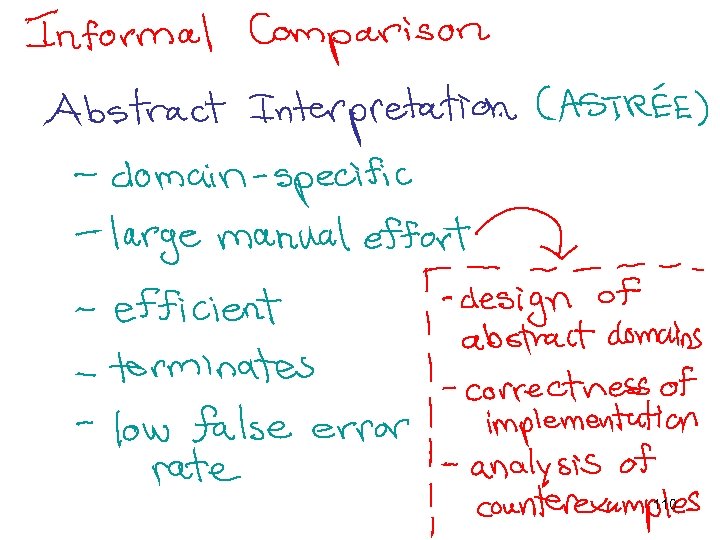 Informal Comparison
Abstract Interpretation (ASTRÉE)
- domain-specific
- large manual effort
- efficient
- terminates
- low false error
rate
- design of
abstract domains
- correctness of
implementation
- analysis of
counterexamples
110